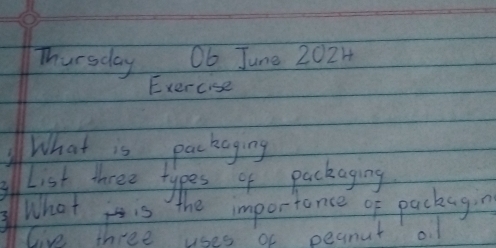 Thursday 06 June 2024
Exercise
1 What is packaging
2 List three types of packaging
3 What is is the importance of packagin
Give three uses of peanut oil